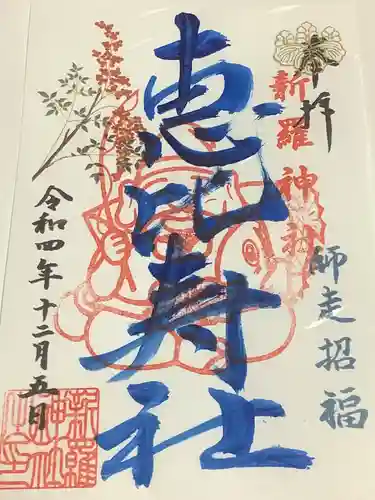 奉拝
新羅神社
恵比寿社
師走招福
令和四年十二月五日
新羅
神社
之印